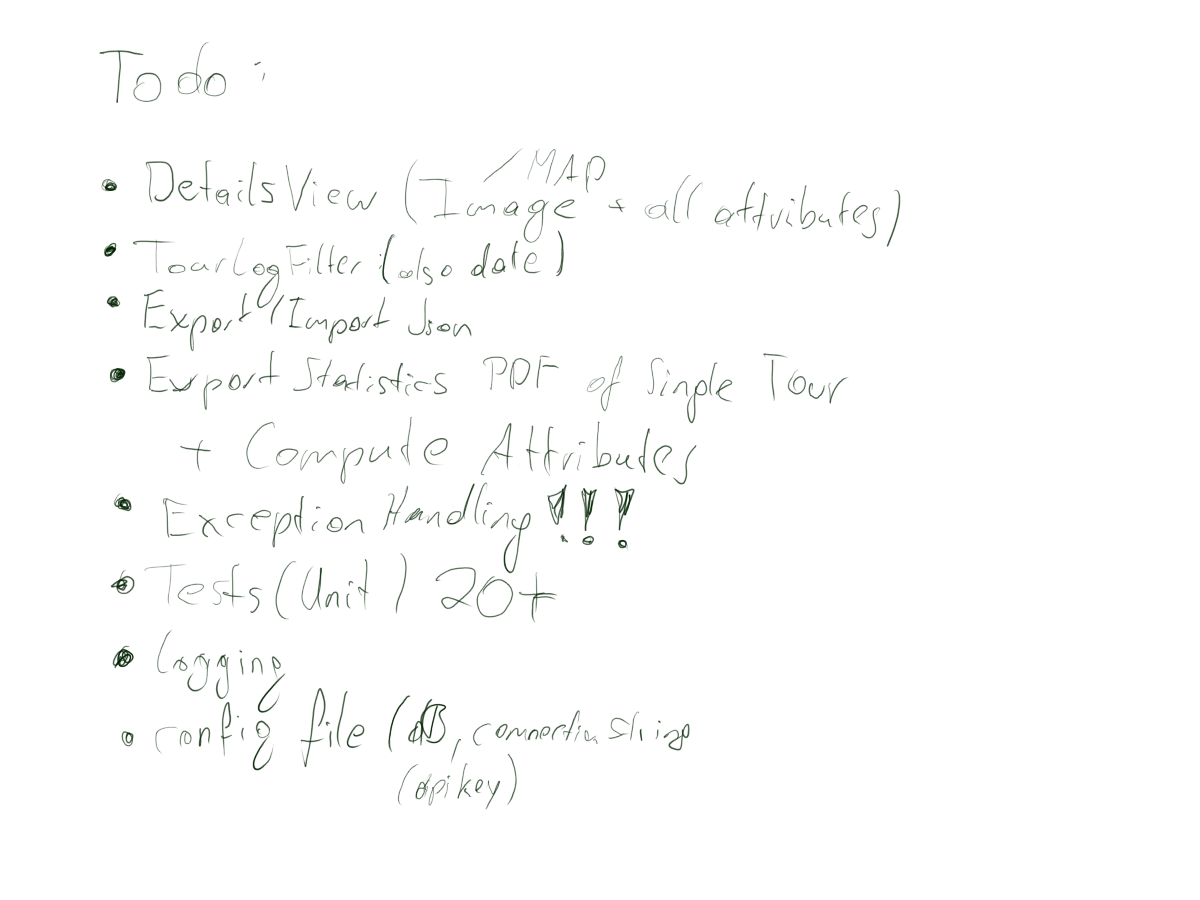 Todo:
• DetailsView (Image/MAP + all attributes)
• TourLogFilter (also date)
• Export/Import Json
• Export Statistics PDF of Single Tour
+ Compute Attributes
• Exception Handling !!!
• Tests (Unit) 20+
• Logging
• config file (dB, connection string
(apikey)